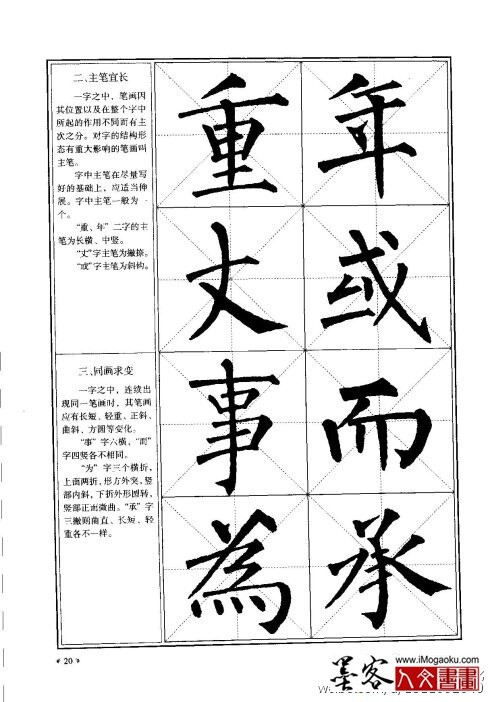 二、主笔宜长
一字之中，笔画因
其位置以及在整个字中
所起的作用不同而有主
次之分。对字的结构形
态有重大影响的笔画叫
主笔。
字中主笔在尽量写
好的基础上，应适当伸
展。字中主笔一般为一
个。
“重、年”二字的主
笔为长横、中竖。
“丈”字主笔为撇捺。
“或”字主笔为斜钩。
重 年
丈 或
三、同画求变
一字之中，连续出
现同一笔画时，其笔画
应有长短、轻重、正斜、
曲斜、方圆等变化。
“事”字六横，“而”
字四竖各不相同。
“为”字三个横折，
上面两折，形方外突，竖
部内斜，下折外形圆转，
竖部正而微曲。“承”字
三撇则曲直、长短、轻
重各不一样。
事 而
為 承
20
墨客
www.iMogaoku.com
人文書畫